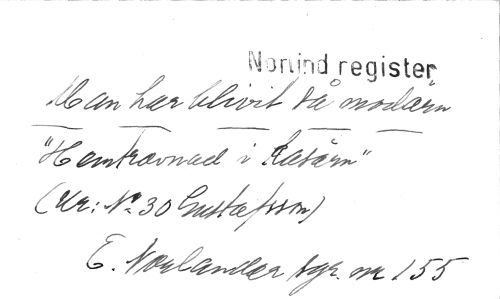 Norlind register
Man har blivit så modärn
"Hemtrevnad i Kasärn"
(Ur: Nr 30 Gustafsson)
E. Norlander sgr. nr 155